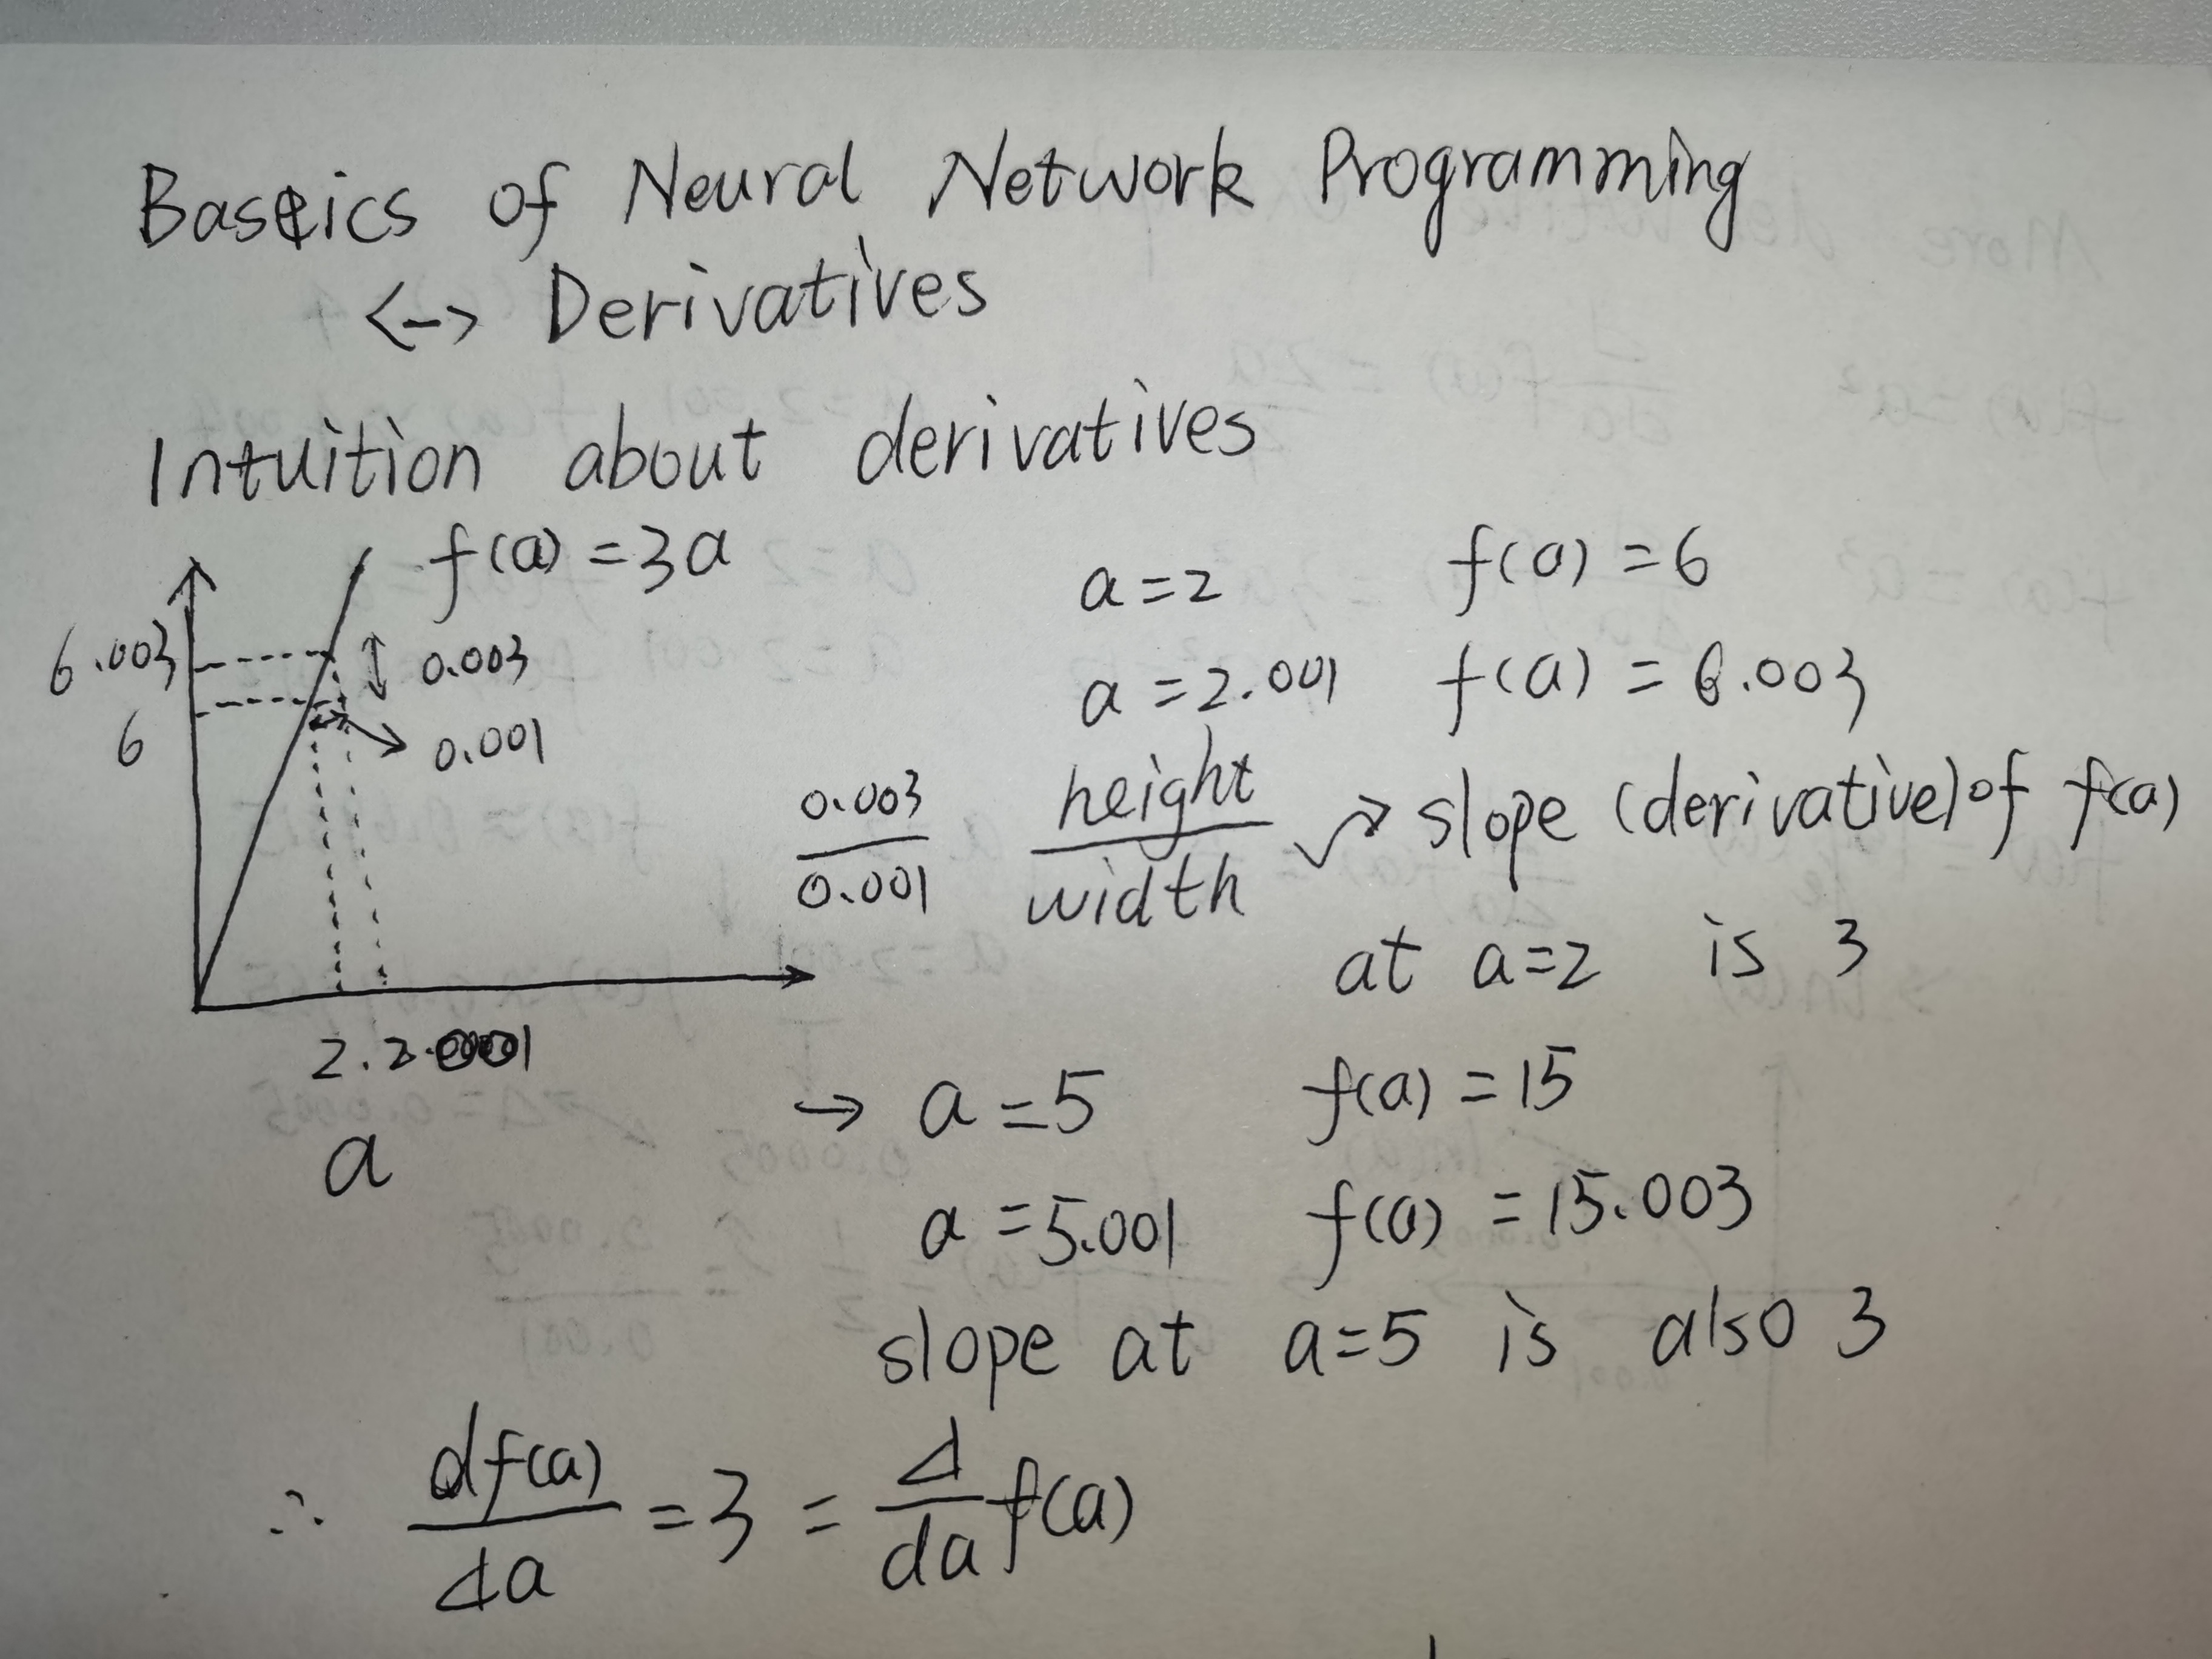 Basics of Neural Network Programming
<-> Derivatives
Intuition about derivatives
f(a) = 3a
a = 2 f(a) = 6
6.003 0.003
a = 2.001 f(a) = 6.003
6 0.001
0.003 / 0.001 height / width ↗ slope (derivative) of f(a)
at a=2 is 3
2. 2.001
a
→ a = 5 f(a) = 15
a = 5.001 f(a) = 15.003
slope at a=5 is also 3
∴ df(a) / da = 3 = d / da f(a)